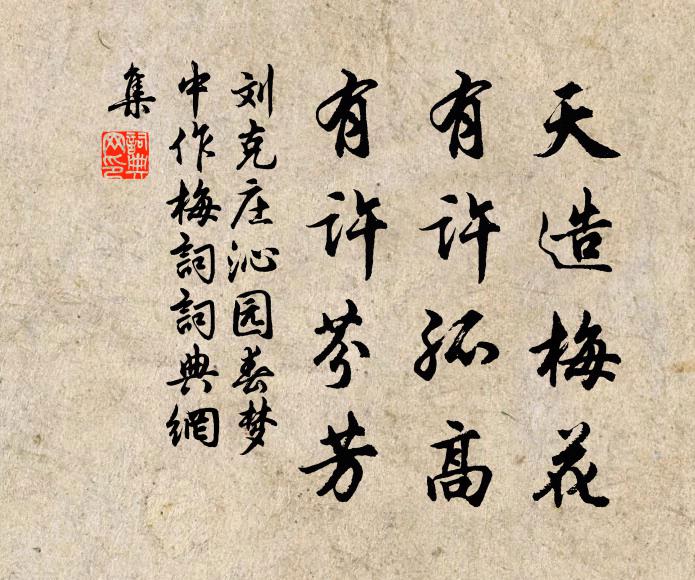 天造梅花
有许孤高
有许芬芳
刘克庄沁园春梦
中作梅詞詞典網
集
詞典网印